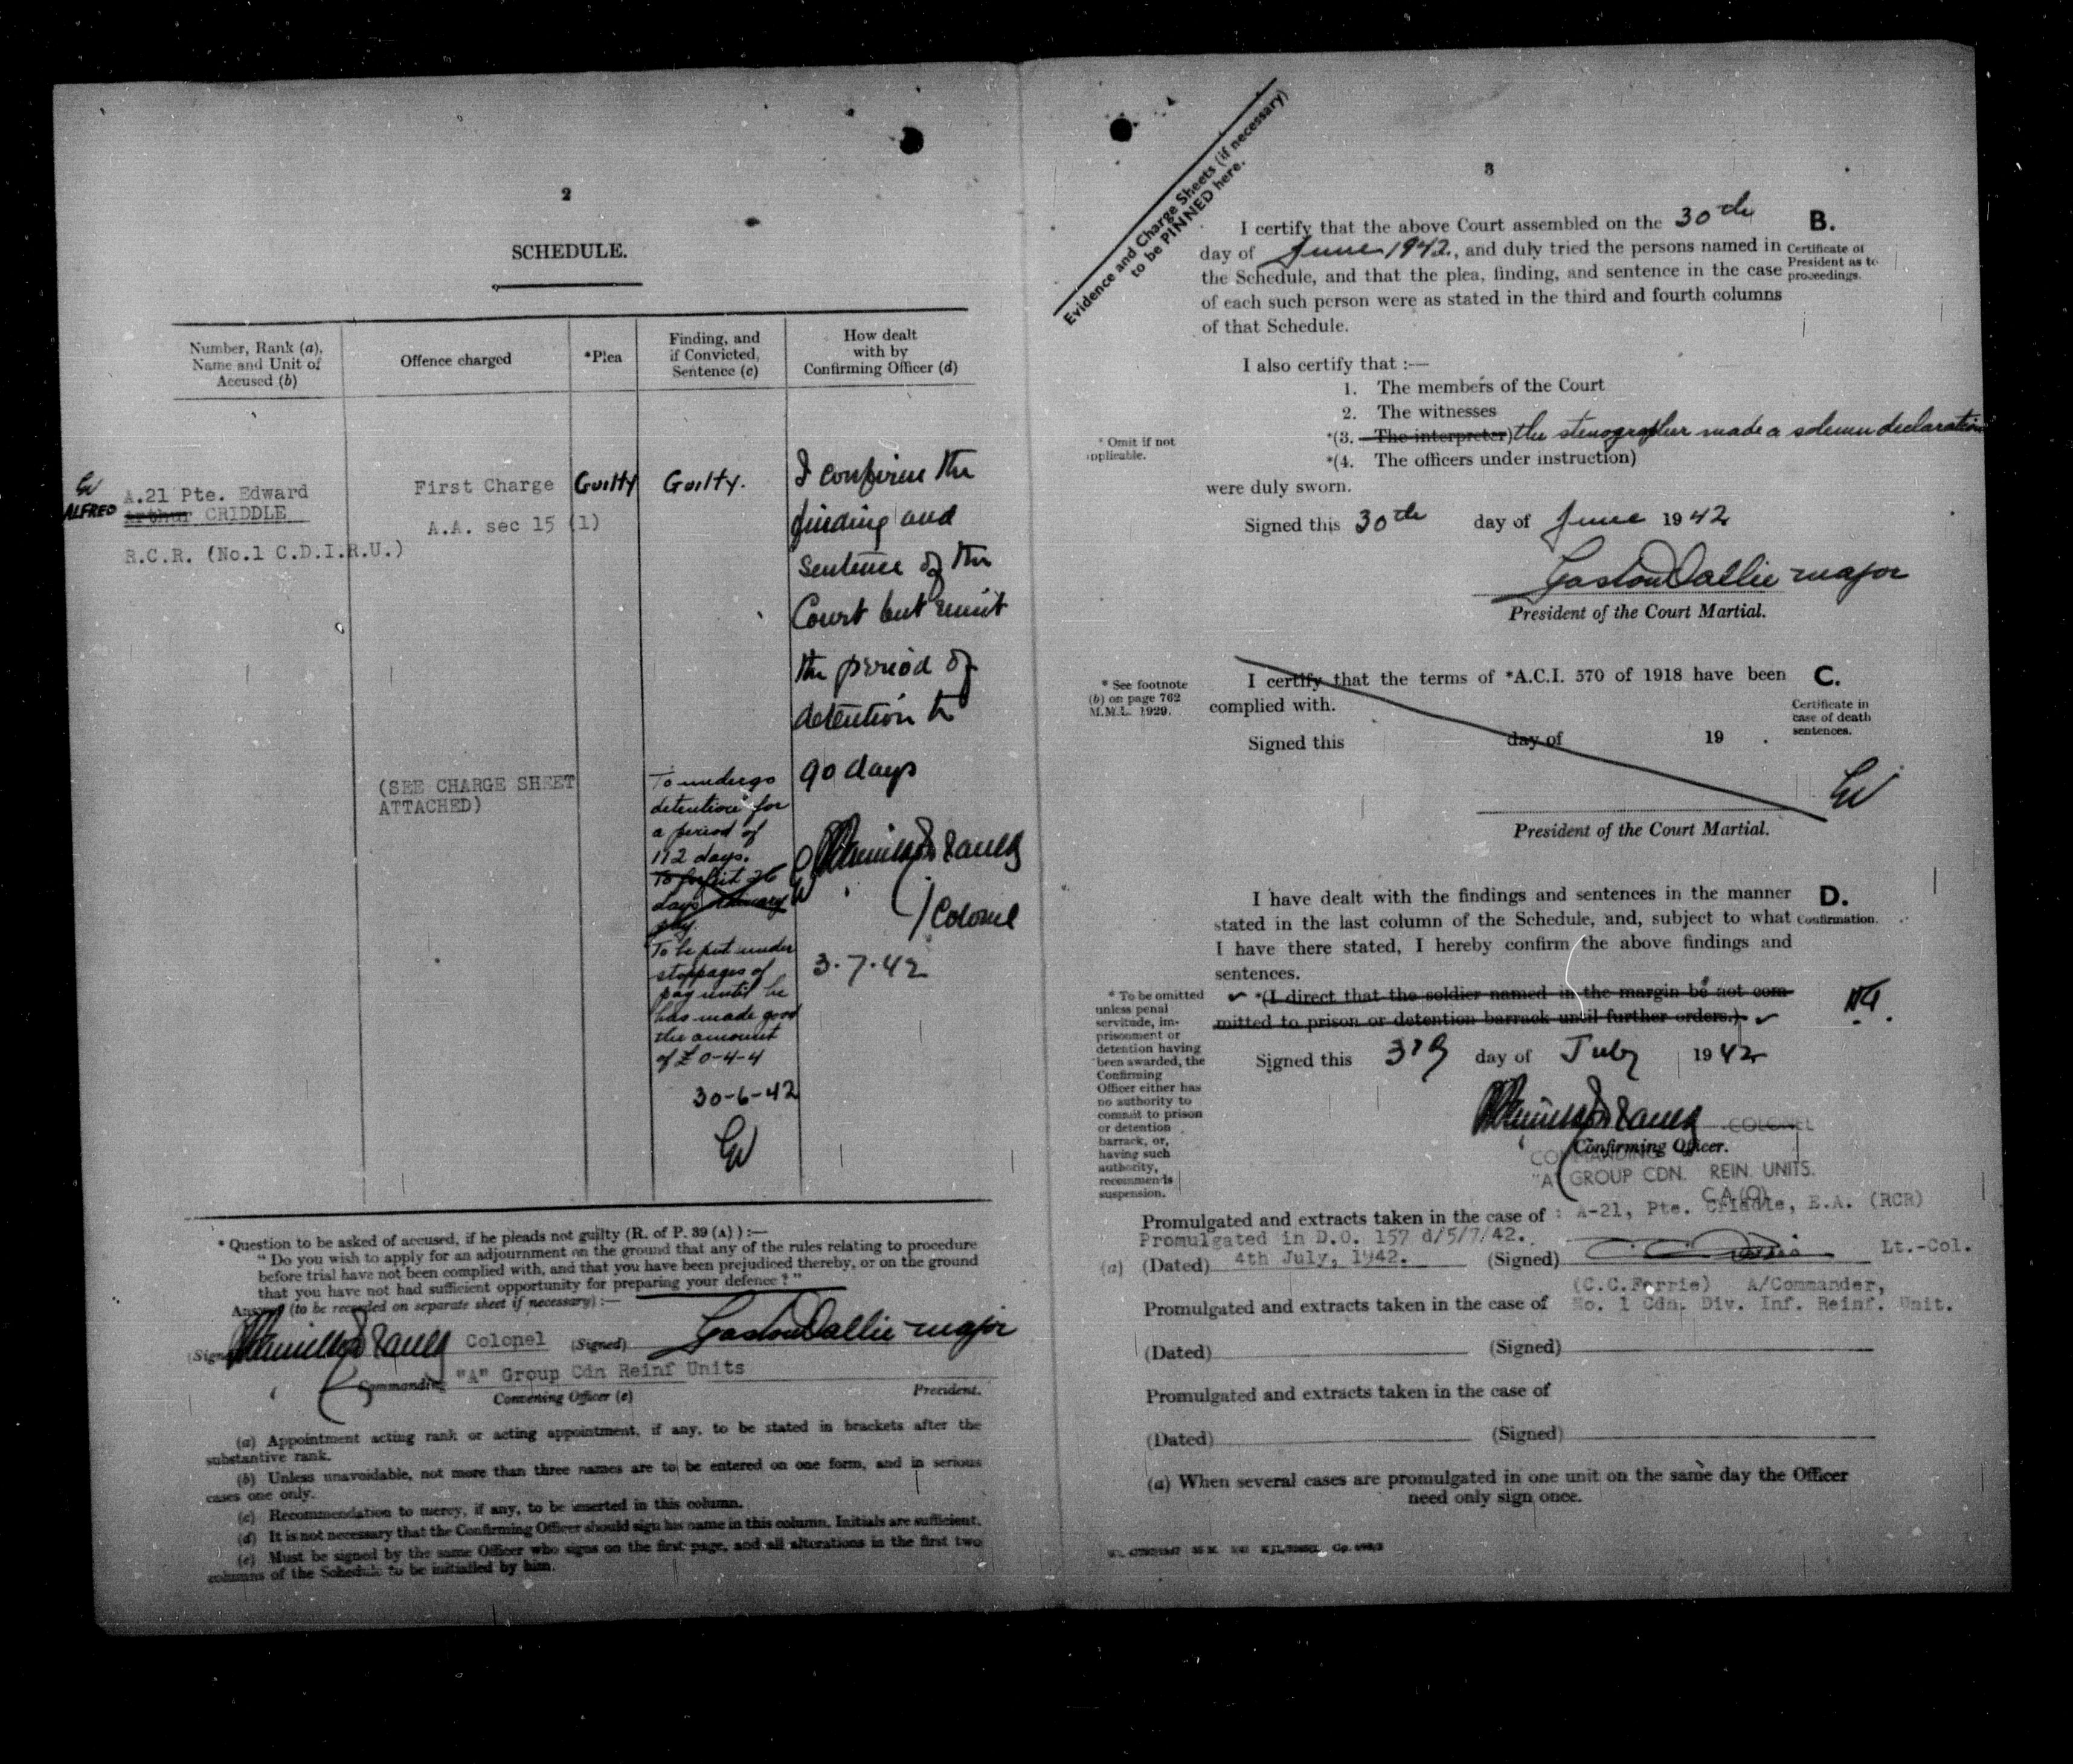 2
SCHEDULE.
Number, Rank (a),
Name and Unit of
Accused (b)
Offence charged
*Plea
Finding, and
if Convicted,
Sentence (c)
How dealt
with by
Confirming Officer (d)
A.21 Pte. Edward
ALFRED Arthur CRIDDLE
R.C.R. (No.1 C.D.I.R.U.)
First Charge
A.A. sec 15 (1)
(SEE CHARGE SHEET
ATTACHED)
Guilty
Guilty.
To undergo
detention for
a period of
112 days.
To forfeit 26
days
pay.
To be put under
stoppages of
pay until he
has made good
the amount
of £ 0-4-4
30-6-42
GV
I confirm the
finding and
sentence of the
Court but remit
the period of
detention to
90 days
Colonel
3.7.42
* Question to be asked of accused, if he pleads not guilty (R. of P. 39 (A) ) :—
" Do you wish to apply for an adjournment on the ground that any of the rules relating to procedure
before trial have not been complied with, and that you have been prejudiced thereby, or on the ground
that you have not had sufficient opportunity for preparing your defence ? "
Answer (to be recorded on separate sheet if necessary) :—
Colonel (Signed) Major
Commanding "A" Group Cdn Reinf Units
Convening Officer (e)
President.
(a) Appointment acting rank or acting appointment, if any, to be stated in brackets after the
substantive rank.
(b) Unless unavoidable, not more than three names are to be entered on one form, and in serious
cases one only.
(c) Recommendation to mercy, if any, to be inserted in this column.
(d) It is not necessary that the Confirming Officer should sign his name in this column. Initials are sufficient.
(e) Must be signed by the same Officer who signs on the first page, and all alterations in the first two
columns of the Schedule to be initialled by him.
Evidence and Charge Sheets (if necessary)
to be PINNED here.
3
I certify that the above Court assembled on the 30th
day of June 1942, and duly tried the persons named in
the Schedule, and that the plea, finding, and sentence in the case
of each such person were as stated in the third and fourth columns
of that Schedule.
B.
Certificate of
President as to
proceedings.
I also certify that :—
1. The members of the Court
2. The witnesses
*(3. The interpreter) the stenographer made a solemn declaration
*(4. The officers under instruction)
* Omit if not
applicable.
were duly sworn.
Signed this 30th day of June 1942
Major
President of the Court Martial.
* See footnote
(b) on page 762
M.M.L. 1929.
I certify that the terms of *A.C.I. 570 of 1918 have been
complied with.
Signed this day of 19 .
C.
Certificate in
case of death
sentences.
GV
President of the Court Martial.
I have dealt with the findings and sentences in the manner
stated in the last column of the Schedule, and, subject to what
I have there stated, I hereby confirm the above findings and
sentences.
D.
Confirmation.
*(I direct that the soldier named in the margin be not com-
mitted to prison or detention barrack until further orders.)
* To be omitted
unless penal
servitude, im-
prisonment or
detention having
been awarded, the
Confirming
Officer either has
no authority to
commit to prison
or detention
barrack, or,
having such
authority,
recommends
suspension.
Signed this 3rd day of July 1942
COLONEL
Confirming Officer.
COMMANDING
"A" GROUP CDN. REIN. UNITS.
C.A.(O)
Promulgated and extracts taken in the case of : A-21, Pte. Criddle, E.A. (RCR)
Promulgated in D.O. 157 d/5/7/42.
(a) (Dated) 4th July, 1942. (Signed) Lt.-Col.
(C.C.Ferrie) A/Commander,
Promulgated and extracts taken in the case of No. 1 Cdn. Div. Inf. Reinf. Unit.
(Dated) (Signed)
Promulgated and extracts taken in the case of
(Dated) (Signed)
(a) When several cases are promulgated in one unit on the same day the Officer
need only sign once.